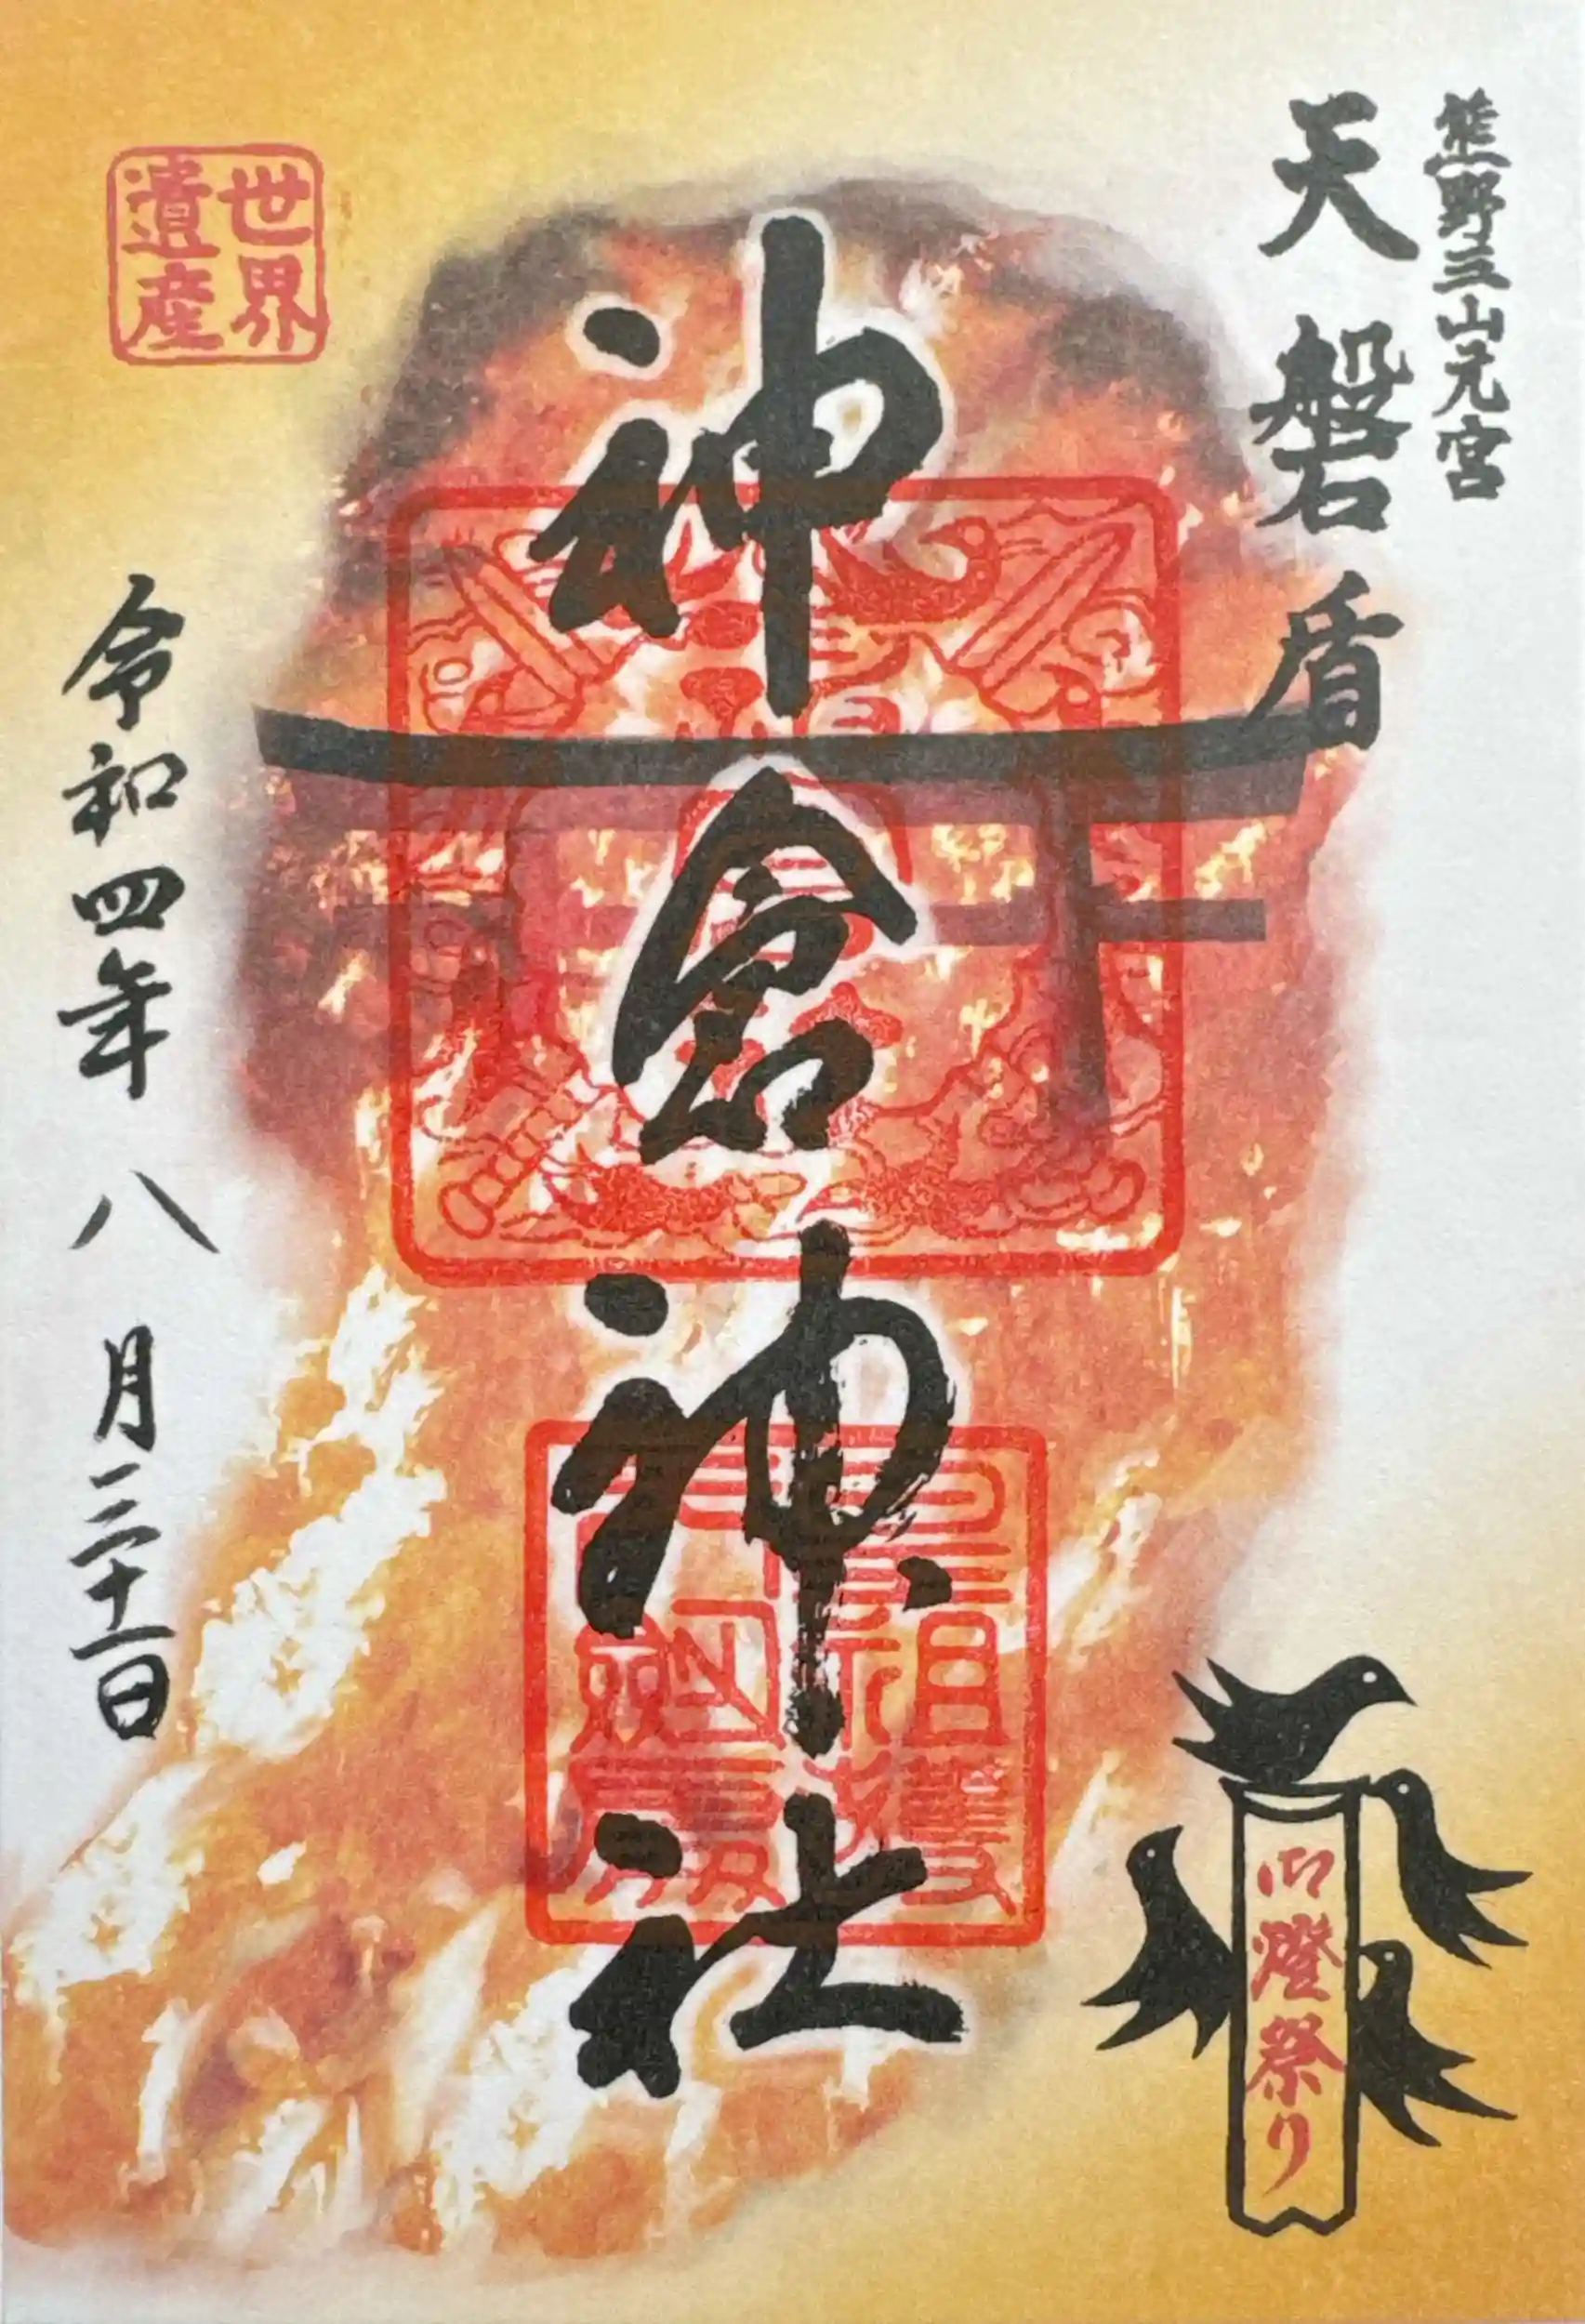 熊野三山元宮
天磐盾
神倉神社
世界
遺産
令和四年八月三十一日
御燈祭り